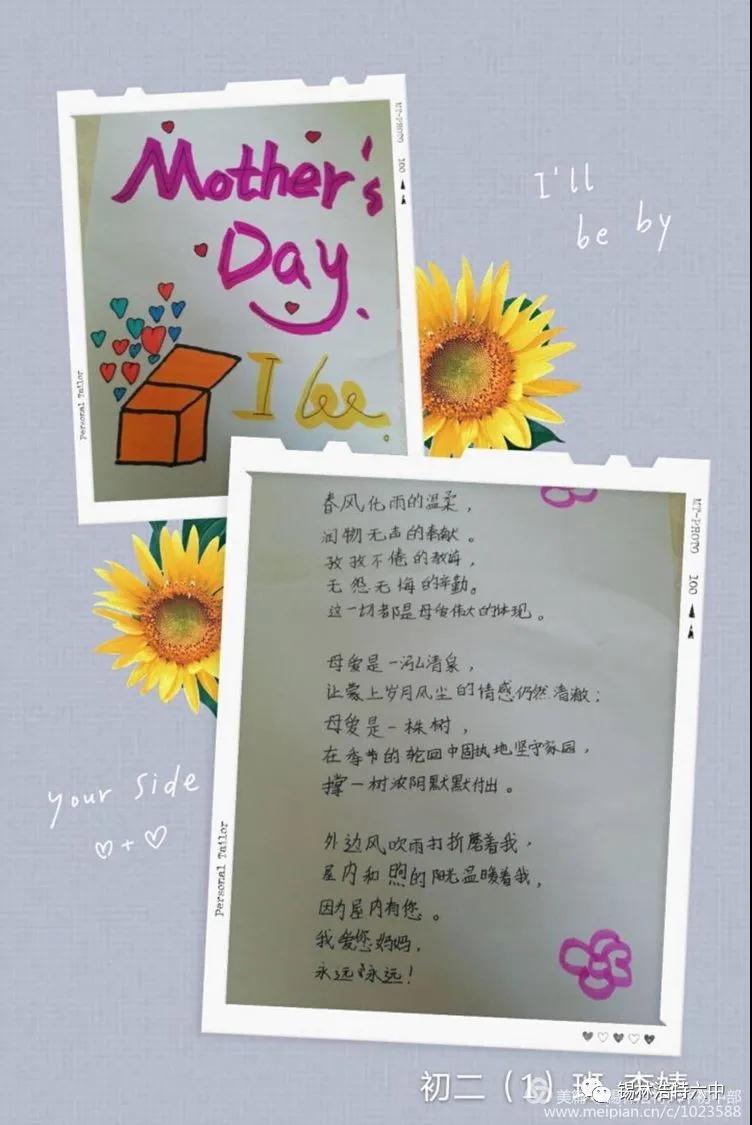 MT-PHOTO 100
Mother's
Day.
I'll
be by
I
Personal Tailor
春风化雨的温柔，
润物无声的奉献。
孜孜不倦的教诲，
无怨无悔的辛勤。
这一切都是母爱伟大的体现。
母爱是一泓清泉，
让蒙上岁月风尘的情感仍然清澈；
母爱是一株树，
在季节的轮回中固执地坚守家园，
撑一树浓阴默默付出。
外边风吹雨打折磨着我，
屋内和煦的阳光温暖着我，
因为屋内有您。
我爱您妈妈，
永远永远！
MT-PHOTO 100
your side
Personal Tailor
初二（1）班
锡林浩特六中
www.meipian.cn/c/1023588